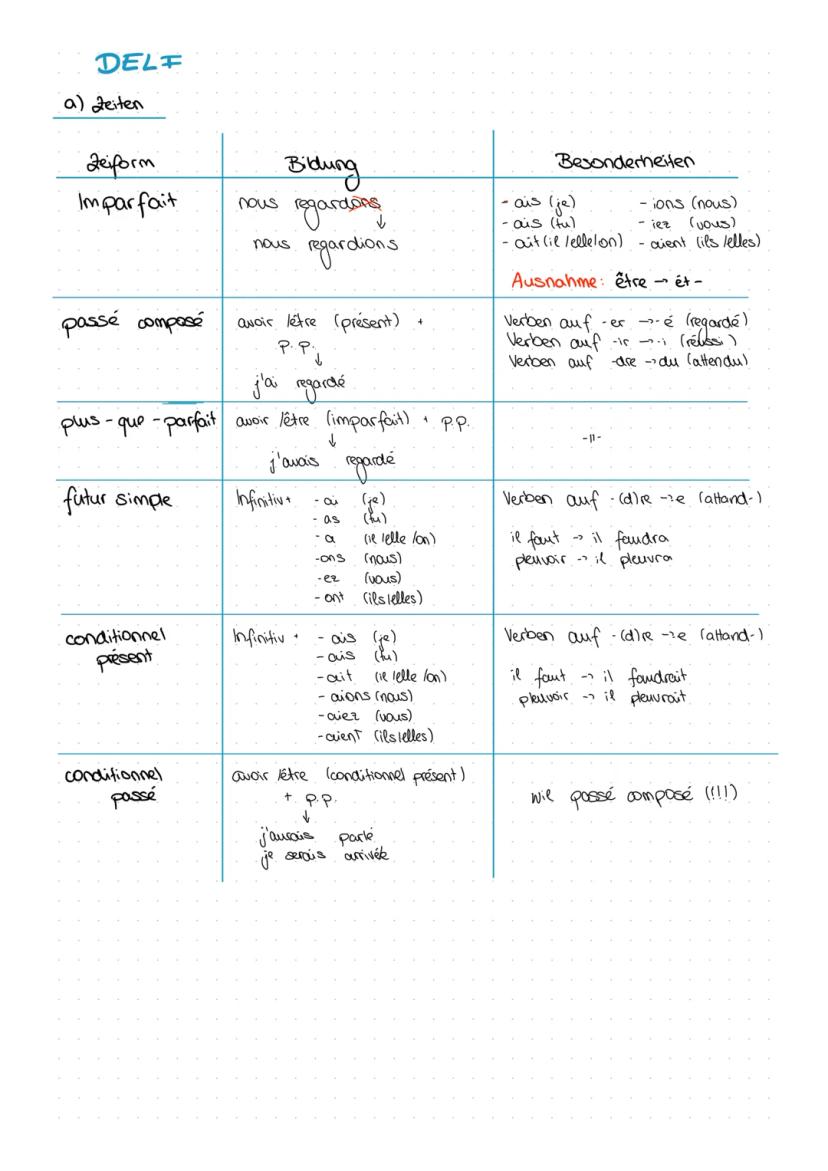 DELF
a) Zeiten
Zeiform Bildung Besonderheiten
Imparfait nous regardons
nous regardions
- ais (je) - ions (nous)
- ais (tu) - iez (vous)
- ait (il/elle/on) - aient (ils/elles)
Ausnahme: être → ét -
passé composé avoir/être (présent) +
P.P.
j'ai regardé
Verben auf -er → -é (regardé)
Verben auf -ir → -i (réussi)
Verben auf -dre → du (attendu)
plus-que-parfait avoir/être (imparfait) + P.P.
j'avais regardé
-||-
futur simple Infinitiv + - ai (je)
- as (tu)
- a (il/elle/on)
- ons (nous)
- ez (vous)
- ont (ils/elles)
Verben auf -(d)re → e (attand-)
il faut → il faudra
pleuvoir → il pleuvra
conditionnel
présent
Infinitiv + - ais (je)
- ais (tu)
- ait (il/elle/on)
- aions (nous)
- aiez (vous)
- aient (ils/elles)
Verben auf -(d)re → e (attand-)
il faut → il faudrait
pleuvoir → il pleuvrait
conditionnel
passé
avoir/être (conditionnel présent)
+ P.P.
j'aurais parlé
je serais arrivée
wie passé composé (!!!)